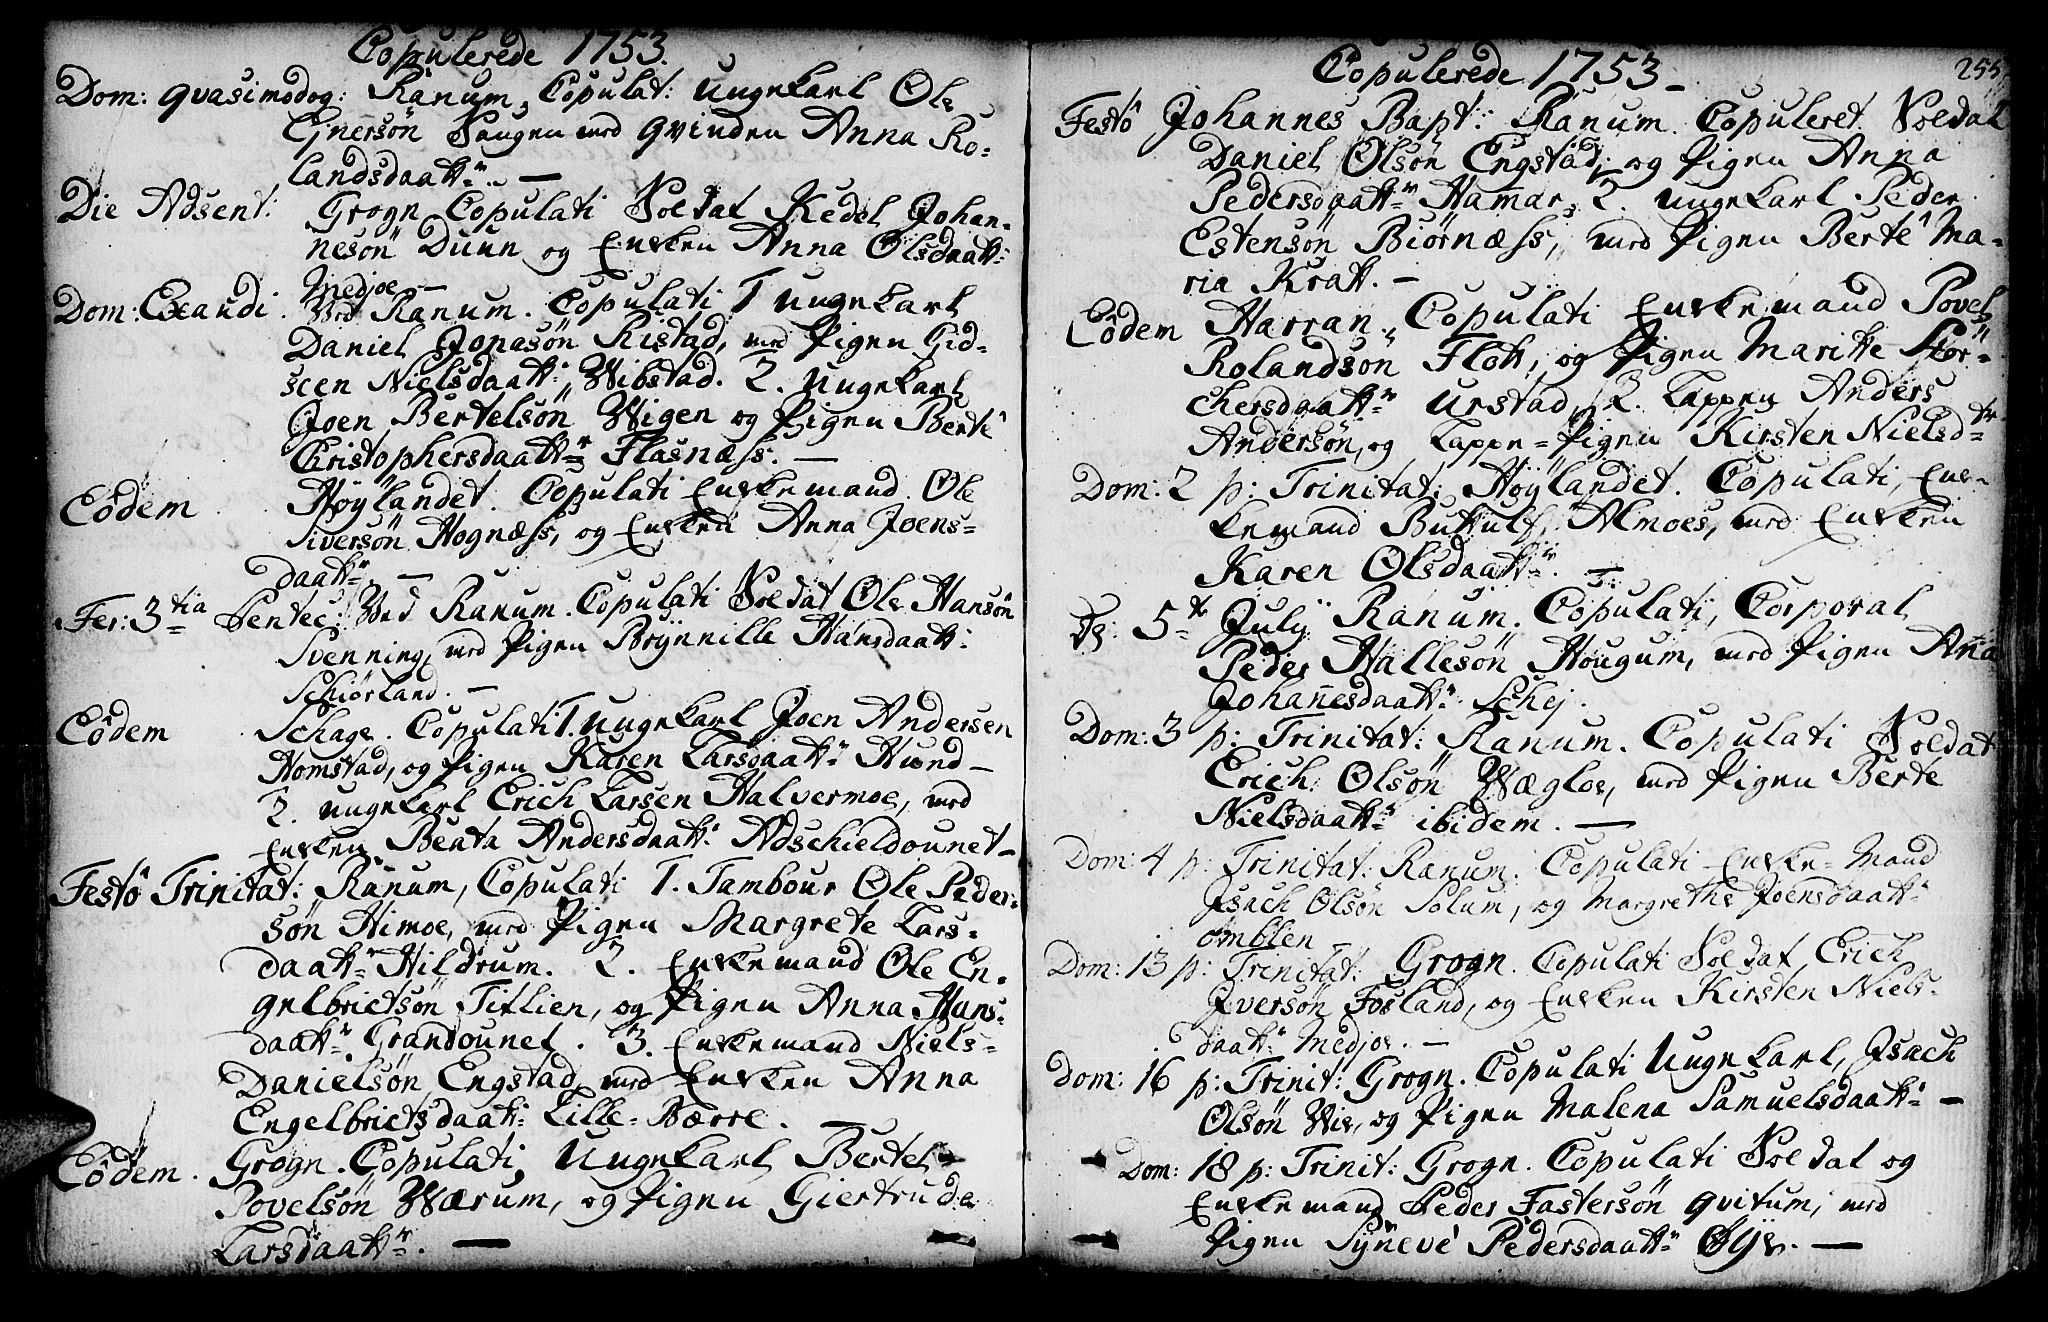 Copulerede 1753.
Dom: qvasimodog: Ranum, Copulat: Ungekarl Ole
Ejnersön Saugen med qvinden Anna Ro-
landsdaattr. —
Die Adsent: Grogn Copulati Soldat Kedel Johan-
nesön Duun og Enken Anna Olsdaatt:
Medjoe —
Dom: Exaudi. Ved Ranum. Copulati 1 ungekarl
Daniel Jonasön Ristad, med Pigen Gid-
scen Nielsdaatt:, Wibstad. 2. Ungekarl
Joen Bertelsön Wigen og Pigen Berte
Christophersdaattr Flasnæss. —
Eôdem. Høÿlandet. Copulati Enkemand Ole
Siversön Hognæss, og Enken Anna Joens-
daattr. —
Fer: 3tia Pentec: Ved Ranum. Copulati Soldat Ole Hansön
Svenning, med Pigen Brÿnnille Hansdaatt:
Schiørland. —
Eôdem Schage. Copulati 1. ungekarl Joen Andersen
Homstad, og Pigen Karen Larsdaattr Hund —
2. ungekarl Erich Larsen Halvermoe, med
Enken Beata Andersdaatr Adschieldounet —
Festô Trinitat: Ranum, Copulati 1. Tambour Ole Peder-
sön Himoe, med Pigen Margrete Lars-
daattr Hildrum. 2. Enkemand Ole En-
gelbrictsön Tiflien, og Pigen Anna Hans-
daattr. Grandounet. 3. Enkemand Niels-
Danielsön Engstad, med Enken Anna
Engelbrictsdaatt: Lille-Bærre. —
Eôdem. Grogn. Copulati, Ungekarl Bertel
Povelsön Wærum, og Pigen Giertrude
Larsdaattr. —
Copulerede 1753 — 255
Festô Johannes Bapt: Ranum. Copuleret Soldat
Daniel Olsön Engstad, og Pigen Anna
Pedersdaattr Hamar, 2. ungekarl Peder
Estensön Biörnæss, med Pigen Berte Ma-
ria Kratt. —
Eôdem Harran, Copulati Enkemand Povel
Rolandsön Flott, og Pigen Maritte Stor-
chersdaattr Urstad, 2. Lappen Anders
Andersön, og Lappe-Pigen Kirsten Nielsdtr
Dom: 2 p: Trinitat: Høÿlandet. Copulati, Enk-
kemand Buttulf Almoes, med Enken
Karen Olsdaattr. —
5te Julij Ranum. Copulati, Corporal
Peder Hallesön Hougum, med Pigen Ana
Johannesdaattr Schej.
Dom: 3 p: Trinitat: Ranum. Copulati Soldat
Erich Olsön Wægloe, med Pigen Berte
Nielsdaattr ibidem. —
Dom: 4 p: Trinitat: Ranum. Copulati Enke-Mand
Isach Olsön Solum, og Margrethe Joensdaattr
omblen
Dom: 13 p: Trinitat: Grogn. Copulati Soldat Erich
Iversön Fosland, og Enken Kirsten Niels-
daattr Medjoe. —
Dom: 16 p: Trinit: Grogn. Copulati Ungekarl, Isach
Olsön Wie, og Pigen Malena Samuelsdaattr —
Dom: 18 p: Trinit: Grogn. Copulati Soldat og
Enkemand Peder Fastersön qvitum, med
Pigen Sÿnevé Pedersdaattr Øÿe. —